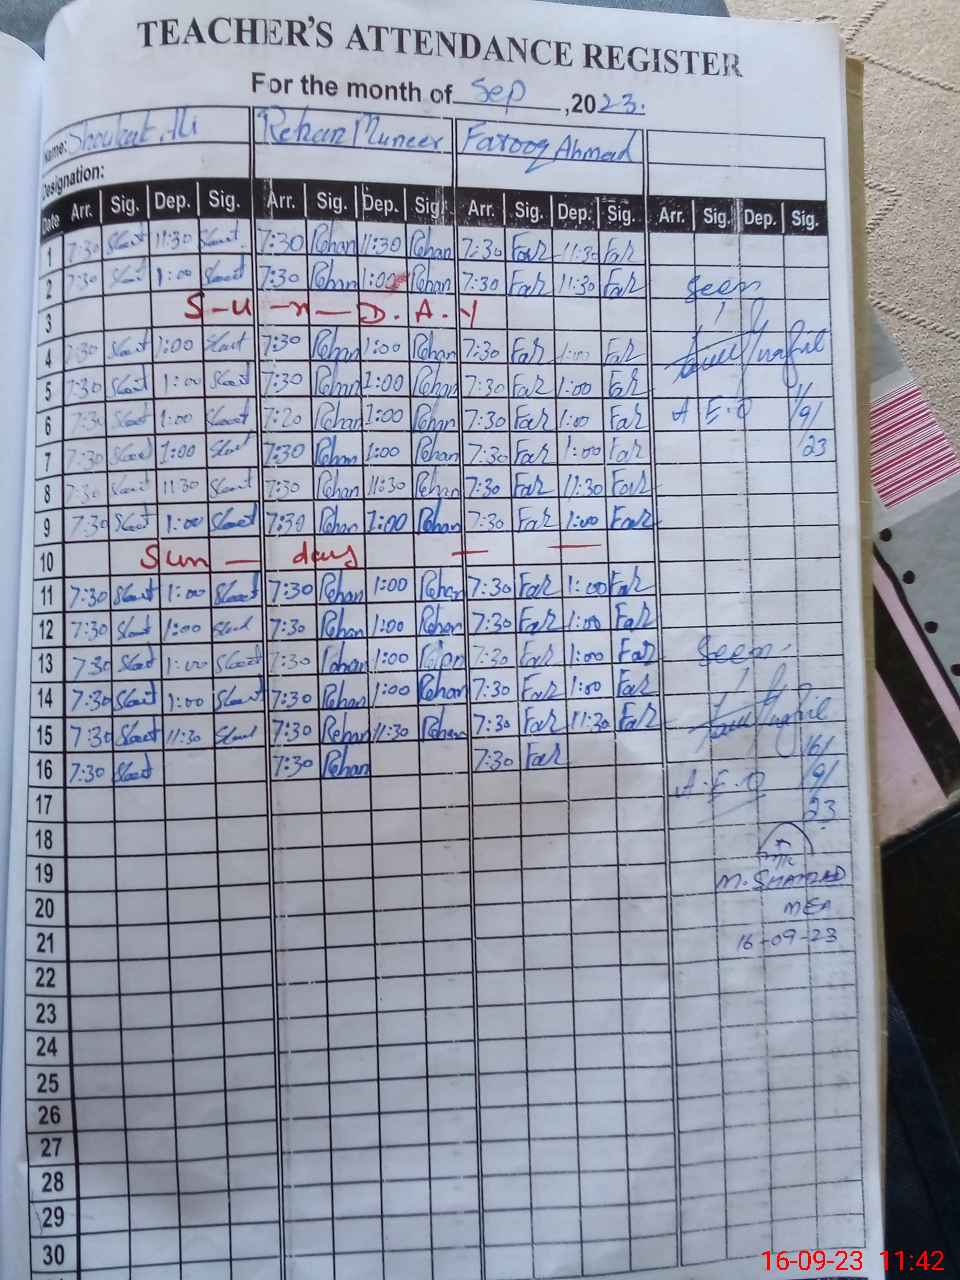 TEACHER'S ATTENDANCE REGISTER
For the month of Sep, 2023.
Name: Shoukat Ali Rehan Muneer Farooq Ahmad
Designation:
Date Arr. Sig. Dep. Sig. Arr. Sig. Dep. Sig. Arr. Sig. Dep. Sig. Arr. Sig. Dep. Sig.
1 7:30 11:30 7:30 Rehan 11:30 Rehan 7:30 Far 11:30 Far
2 7:30 1:00 7:30 Rehan 1:00 Rehan 7:30 Far 11:30 Far Seen
3 S-u-n-D.A.y
4 7:30 1:00 7:30 Rehan 1:00 Rehan 7:30 Far 1:00 Far
5 7:30 1:00 7:30 Rehan 1:00 Rehan 7:30 Far 1:00 Far 1/
6 7:30 1:00 7:20 Rehan 1:00 Rehan 7:30 Far 1:00 Far A.E.O 9/
7 7:30 1:00 7:30 Rehan 1:00 Rehan 7:30 Far 1:00 Far 23
8 7:30 11:30 7:30 Rehan 11:30 Rehan 7:30 Far 11:30 Far
9 7:30 1:00 7:30 Rehan 1:00 Rehan 7:30 Far 1:00 Far
10 Sun — days — —
11 7:30 1:00 7:30 Rehan 1:00 Rehan 7:30 Far 1:00 Far
12 7:30 1:00 7:30 Rehan 1:00 Rehan 7:30 Far 1:00 Far
13 7:30 1:00 7:30 Rehan 1:00 Rehan 7:30 Far 1:00 Far Seen-
14 7:30 1:00 7:30 Rehan 1:00 Rehan 7:30 Far 1:00 Far
15 7:30 11:30 7:30 Rehan 11:30 Rehan 7:30 Far 11:30 Far 16/
16 7:30 7:30 Rehan 7:30 Far A.E.O 9/
17 23
18
19 M. SHAHZAD
20 MEA
21 16-09-23
22
23
24
25
26
27
28
29
30
16-09-23 11:42